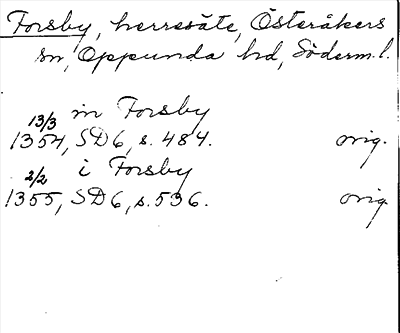 Forsby, herresäte, Österåkers
sn, Oppunda hd, Söderm.l.
13/3 in Forsby
1354, SD6, s. 484. orig.
2/2 i Forsby
1355, SD6, s. 536. orig